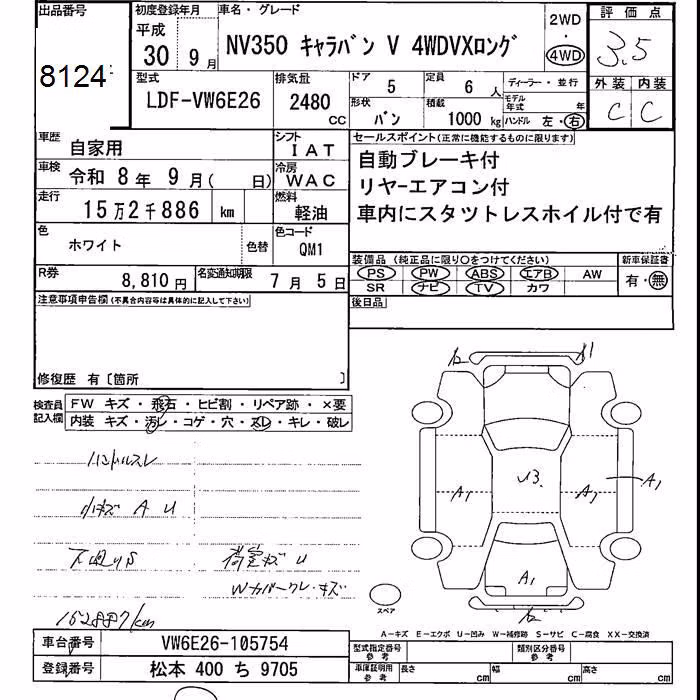 出品番号
8124
初度登録年月
平成
30 年 9 月
車名・グレード
NV350 キャラバン V 4WDVXロング
2WD
・
4WD
評価点
3.5
外装 内装
C C
型式
LDF-VW6E26
排気量
2480
cc
ドア
5
定員
6 人
ディーラー・並行
形状
バン
積載
1000 kg
モデル年式 年
ハンドル 左・右
車歴
自家用
シフト
IAT
車検
令和 8 年 9 月( 日)
冷房
WAC
走行
15万2千886 km
燃料
軽油
色
ホワイト
色替
色コード
QM1
R券
8,810 円
名変通知期限
7 月 5 日
セールスポイント(正常に機能するものに限ります)
自動ブレーキ付
リヤーエアコン付
車内にスタツトレスホイル付で有
装備品(純正品に限り○をつけてください)
PS PW ABS エアB AW
SR ナビ TV カワ
新車保証書
有・無
後日品
注意事項申告欄(不具合内容等は具体的に記入して下さい)
修復歴 有〔箇所 〕
検査員記入欄
FW キズ・飛石・ヒビ割・リペア跡・×要
内装 キズ・汚レ・コゲ・穴・スレ・キレ・破レ
ハンドルスレ
小キズ A U
下廻りS
荷室キズ U
Wカバークレ・キズ
152887km
A1
U3
A1
A1
A1
スペア
A-キズ E-エクボ U-凹み W-補修跡 S-サビ C-腐食 XX-交換済
車台番号
VW6E26-105754
登録番号
松本 400 ち 9705
型式指定番号
参考
類別区分番号
参考
車庫証明用
参考
長さ cm
幅 cm
高さ cm